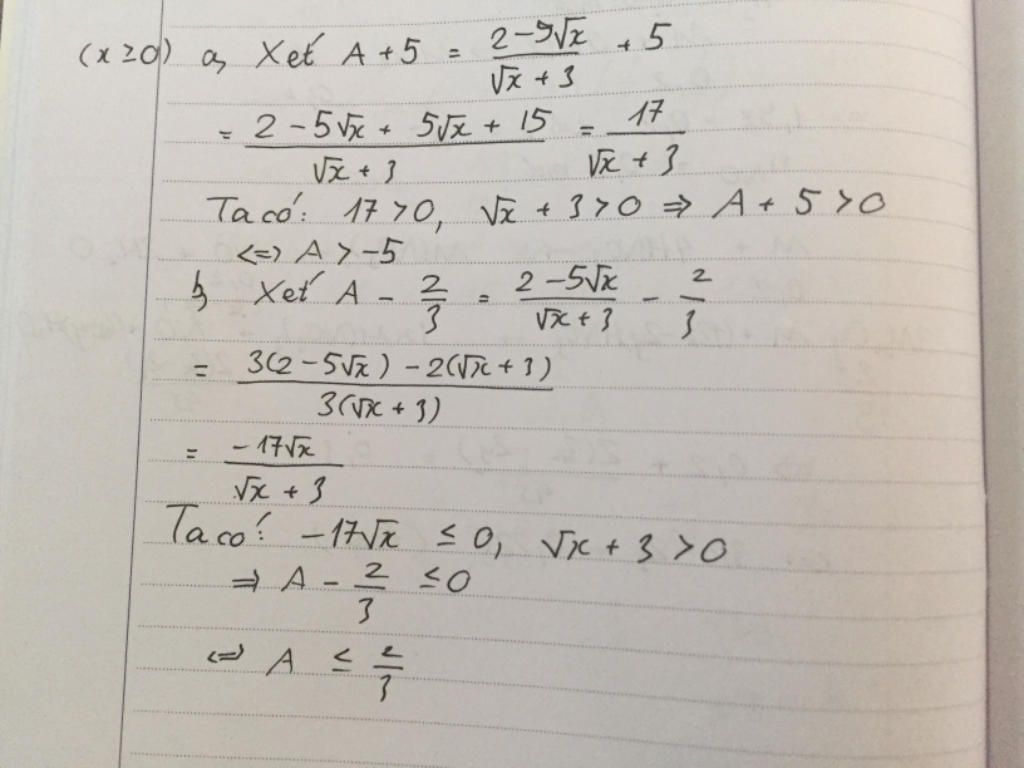 (x ≥ 0) a, Xét A + 5 = (2 - 5√x)/(√x + 3) + 5
= (2 - 5√x + 5√x + 15)/(√x + 3) = 17/(√x + 3)
Ta có: 17 > 0, √x + 3 > 0 ⇒ A + 5 > 0
⇔ A > -5
b, Xét A - 2/3 = (2 - 5√x)/(√x + 3) - 2/3
= (3(2 - 5√x) - 2(√x + 3))/(3(√x + 3))
= (-17√x)/(√x + 3)
Ta có: -17√x ≤ 0, √x + 3 > 0
⇒ A - 2/3 ≤ 0
⇔ A ≤ 2/3